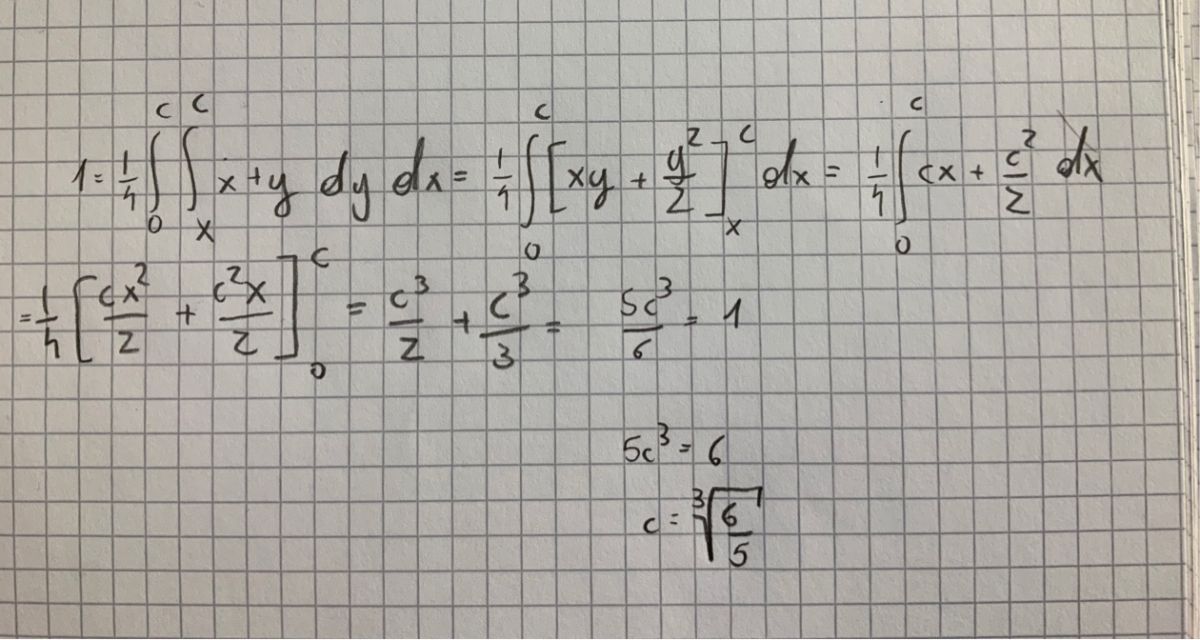 1 = 1/4 ∫₀^c ∫ₓ^c x+y dy dx = 1/4 ∫₀^c [xy + y²/2]ₓ^c dx = 1/4 ∫₀^c cx + c²/2 dx
= 1/4 [cx²/2 + c²x/2]₀^c = c³/2 + c³/3 = 5c³/6 = 1
5c³ = 6
c = ∛(6/5)